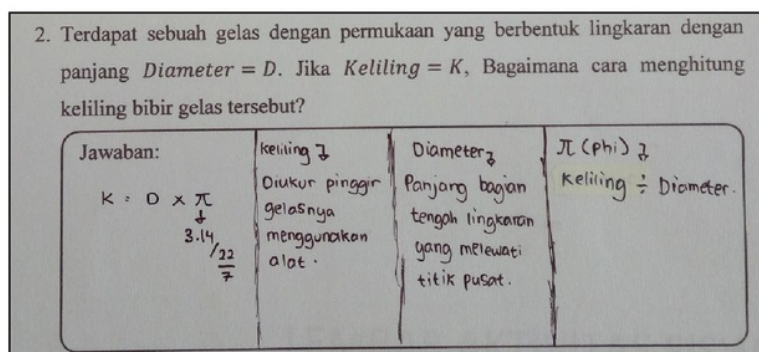 2. Terdapat sebuah gelas dengan permukaan yang berbentuk lingkaran dengan
panjang Diameter = D. Jika Keliling = K, Bagaimana cara menghitung
keliling bibir gelas tersebut?
Jawaban:
K = D x π
↓
3.14/22/7
keliling
Diukur pinggir
gelasnya
menggunakan
alat.
Diameter
Panjang bagian
tengah lingkaran
yang melewati
titik pusat.
π (phi)
Keliling ÷ Diameter.